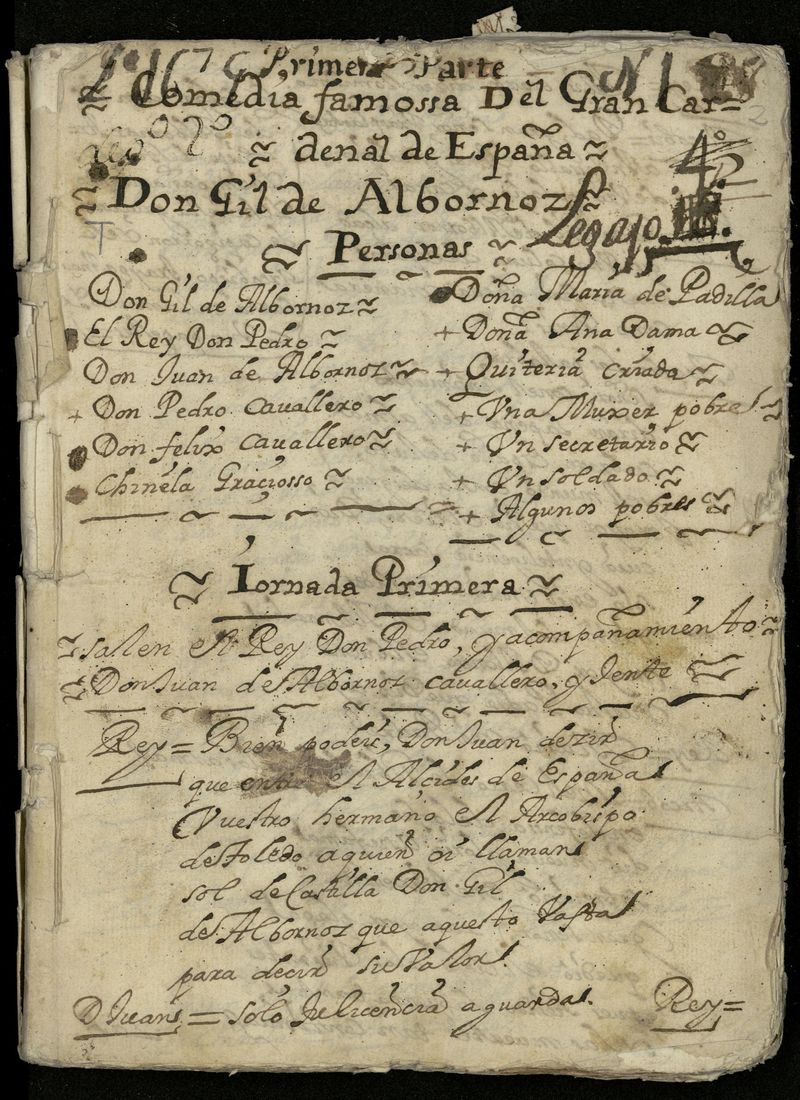 Primera Parte
Comedia famossa Del Gran Car=
N 1
denal de España
Don Gil de Albornoz
Legajo
4º
Personas
Don Gil de Albornoz
El Rey Don Pedro
Don Juan de Albornoz
+ Don Pedro cavallero
Don felix cavallero
Chinela Graciosso
Doña Maria de Padilla
+ Doña Ana Dama
+ Quiteria criada
+ Vna Muxer pobre
+ Vn secretario
+ Vn soldado
+ Algunos pobres
Iornada Primera
salen el Rey Don Pedro, y acompañamiento
Don Juan de Albornoz cavallero, y jente
Rey = Bien podeis, Don Juan dezir
que el Alcides de España
Vuestro hermano el Arcobispo
de toledo a quien oi llaman
sol de Castilla Don Gil
de Albornoz que aquesto Vasta
para decir su Valor.
D Juan = solo su licencia aguarda.
Rey =